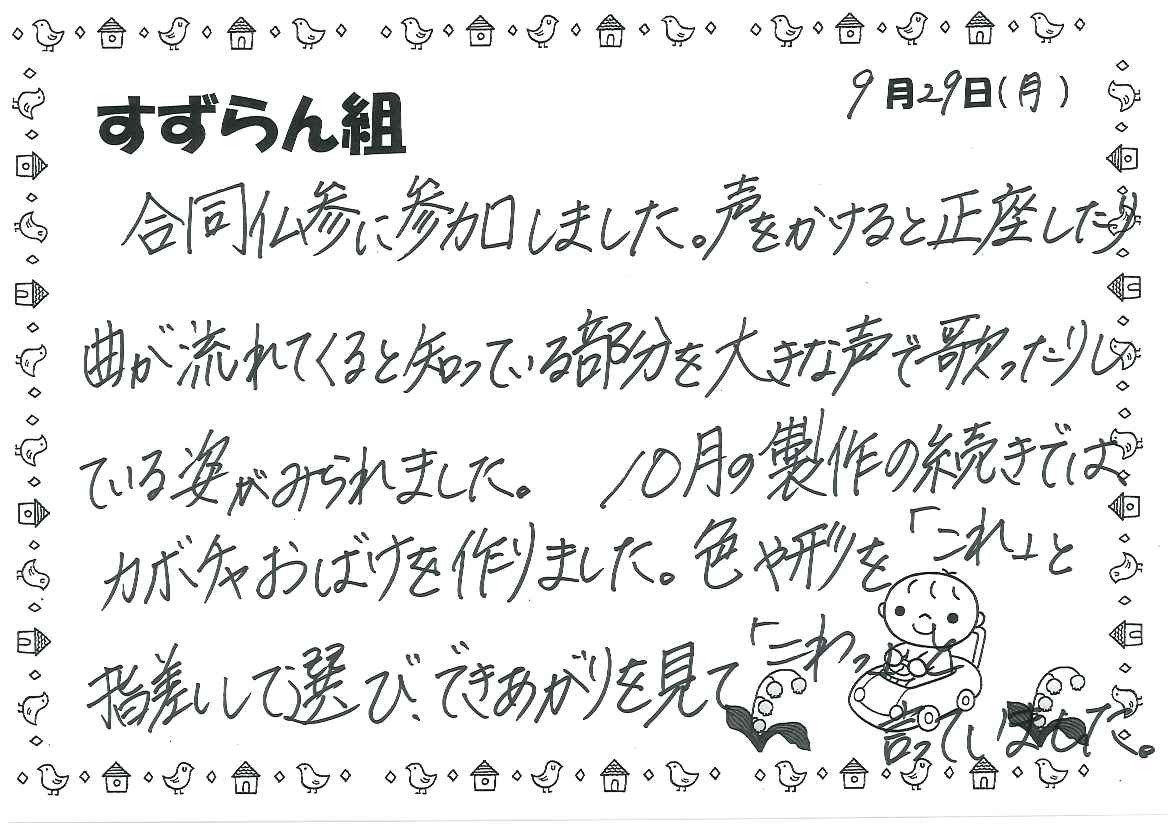 すずらん組
9月29日(月)
合同仏参に参加しました。声をかけると正座したり
曲が流れてくると知っている部分を大きな声で歌ったりし
ている姿がみられました。 10月の製作の続きでは
カボチャおばけを作りました。色や形を「これ」と
指差しして選び、できあがりを見て「こわっ
言っていました。